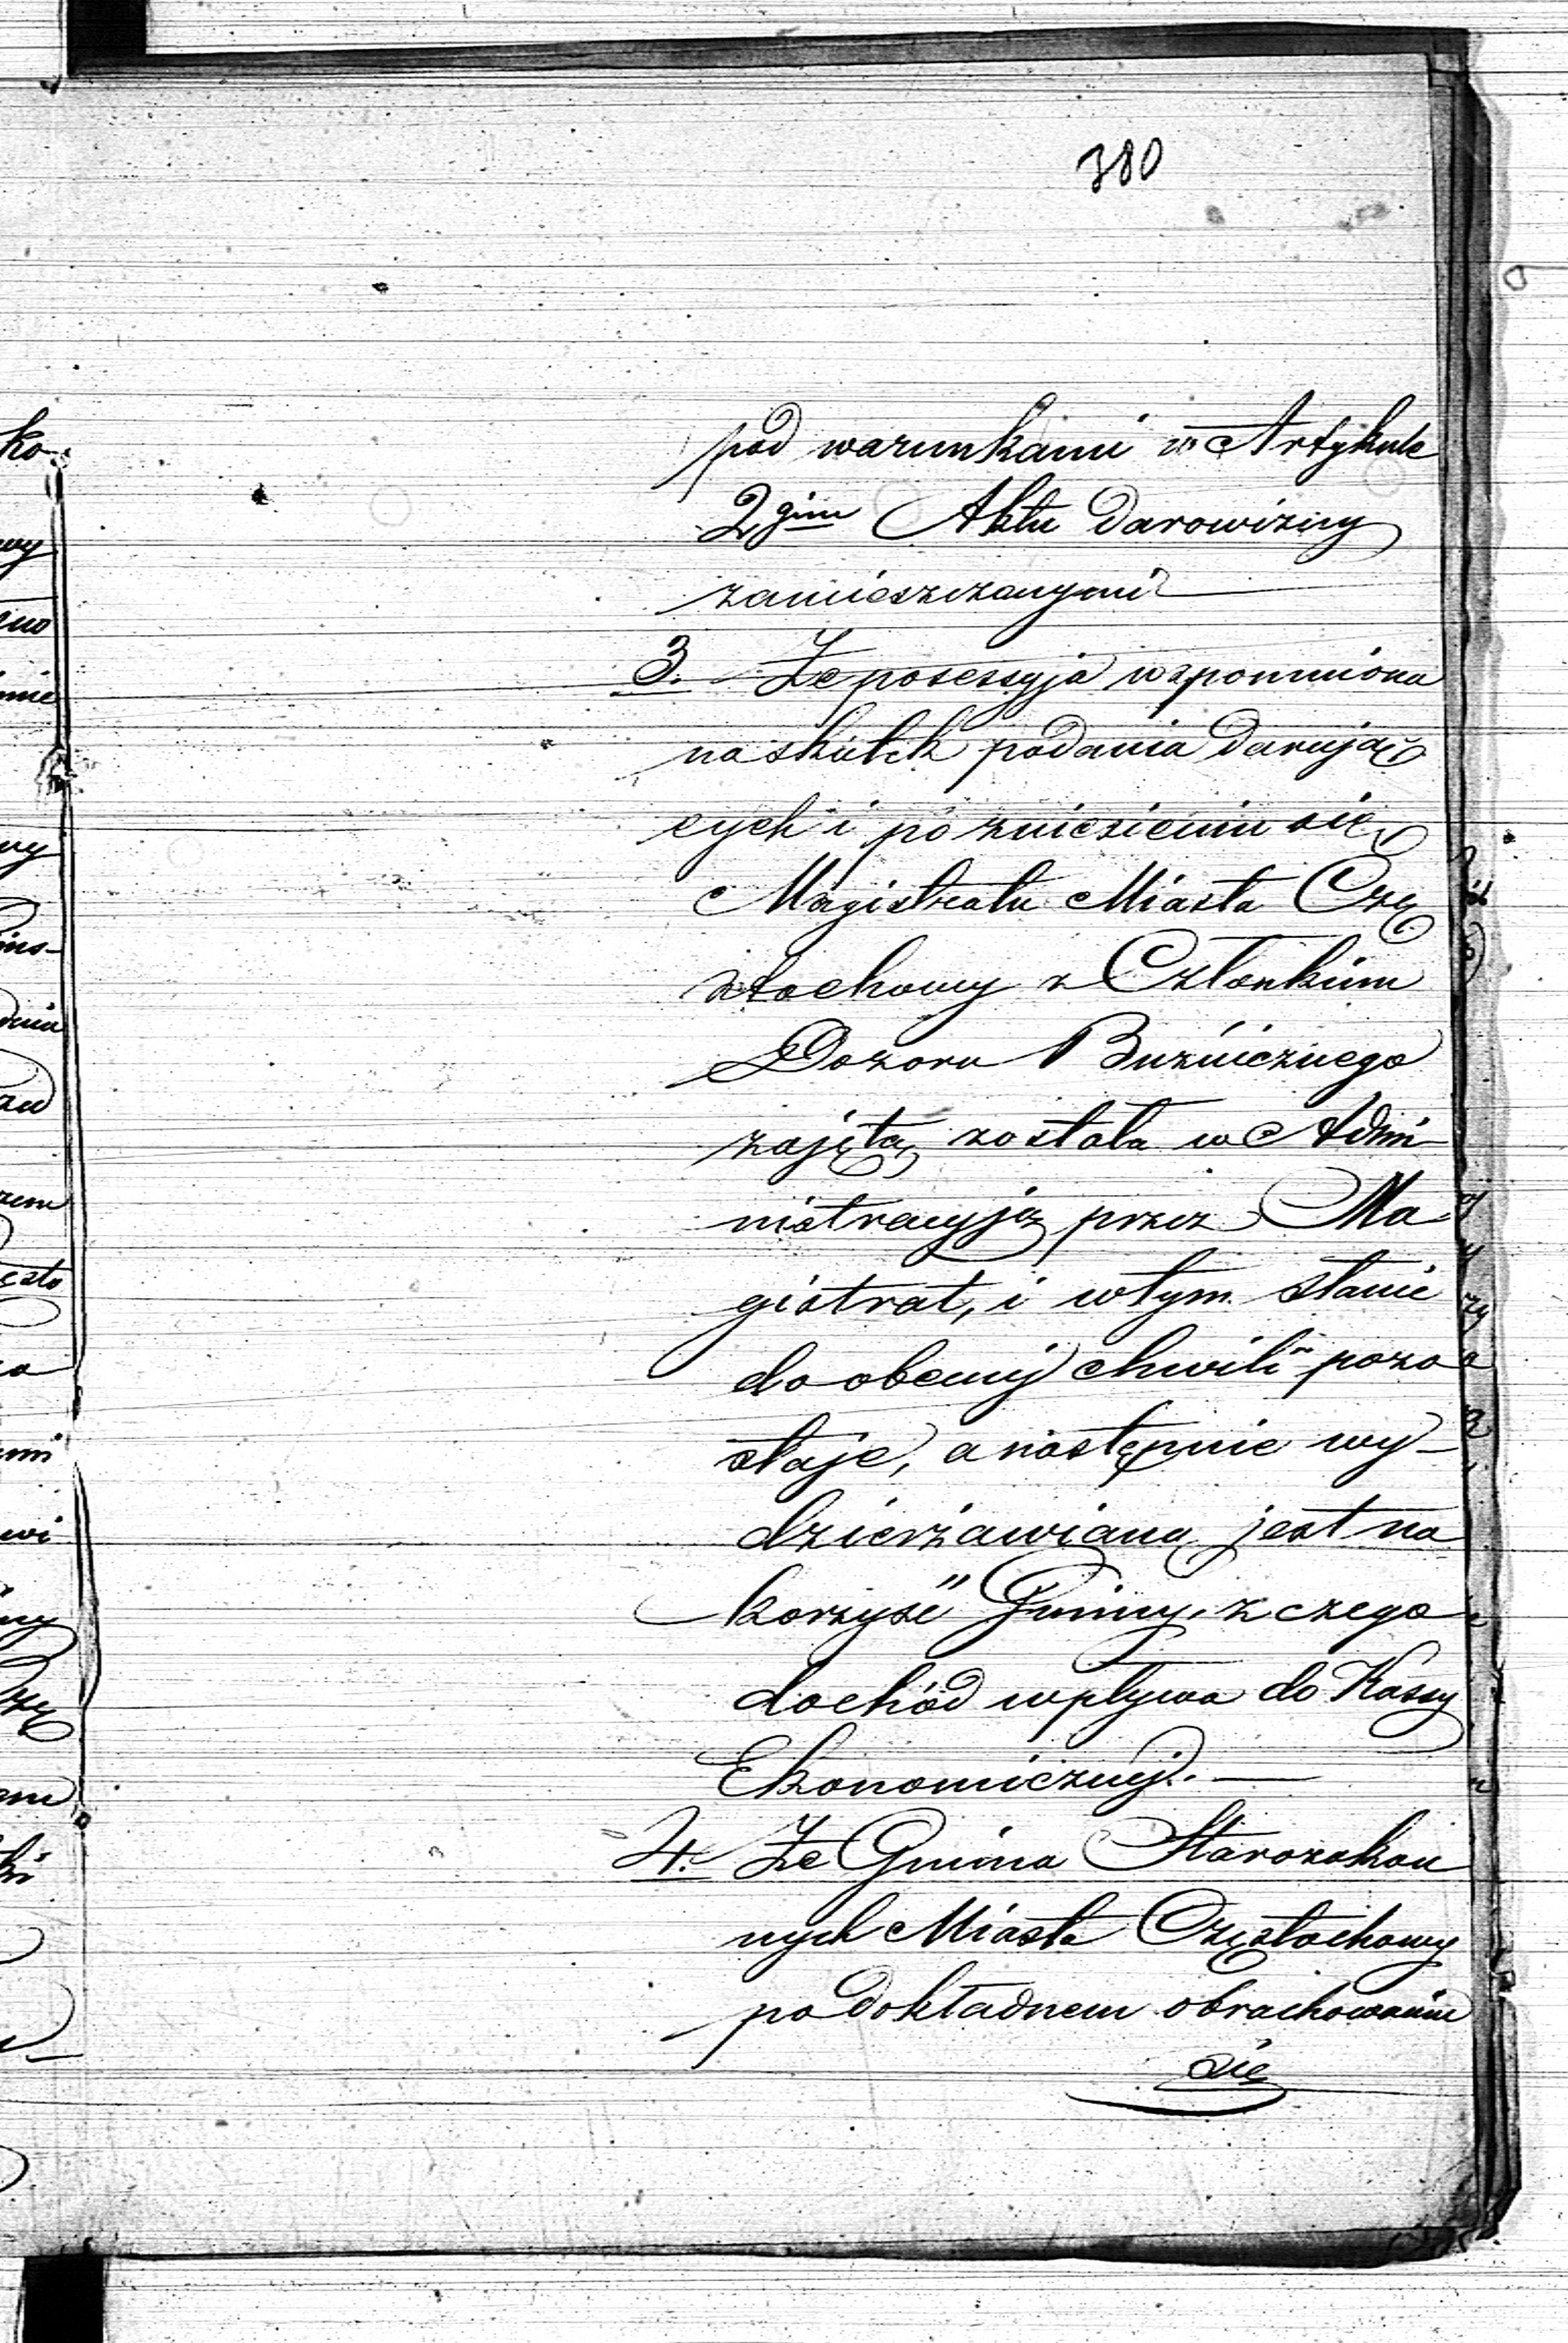 380
pod warunkami w Artykule
2gim Aktu darowizny
zamieszczonymi
3. Że posessyja wspomniona
na skutek podania darują
cych i po zniesieniu się
Magistratu Miasta Czę
stochowy z Członkiem
Dozoru Bużnicznego
zajętą została w Admi-
nistracyją przez Ma-
gistrat, i w tym stanie
do obecnej chwili pozo
staje, a następnie wy-
dzierżawianą jest na
korzyść Gminy, z czego
dochód wpływa do Kassy
Ekonomicznej. —
4. Że Gmina Starozakon
nych Miasta Częstochowy
po dokładnem obrachowaniu
się